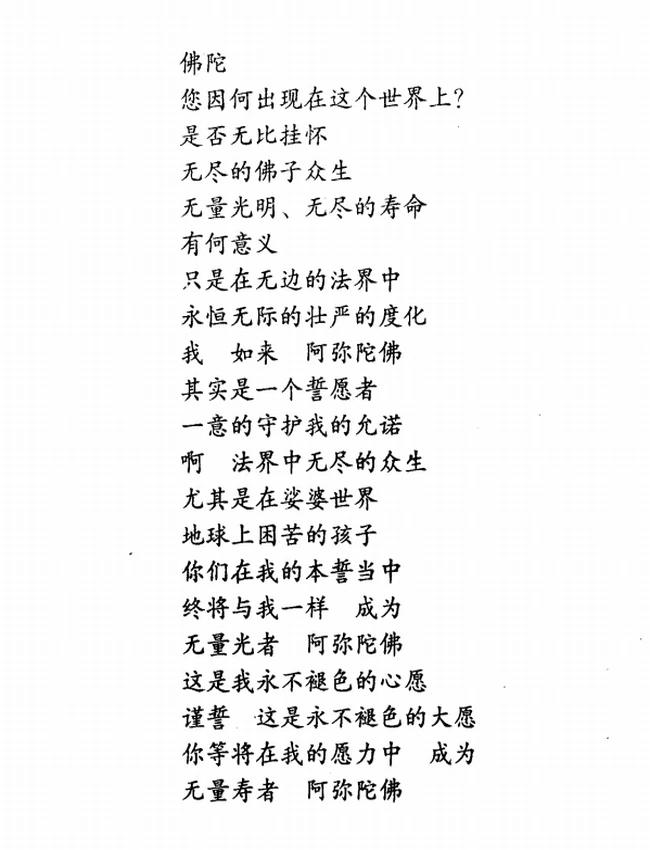 佛陀
您因何出现在这个世界上？
是否无比挂怀
无尽的佛子众生
无量光明、无尽的寿命
有何意义
只是在无边的法界中
永恒无际的壮严的度化
我　如来　阿弥陀佛
其实是一个誓愿者
一意的守护我的允诺
啊　法界中无尽的众生
尤其是在娑婆世界
地球上困苦的孩子
你们在我的本誓当中
终将与我一样　成为
无量光者　阿弥陀佛
这是我永不褪色的心愿
谨誓　这是永不褪色的大愿
你等将在我的愿力中　成为
无量寿者　阿弥陀佛